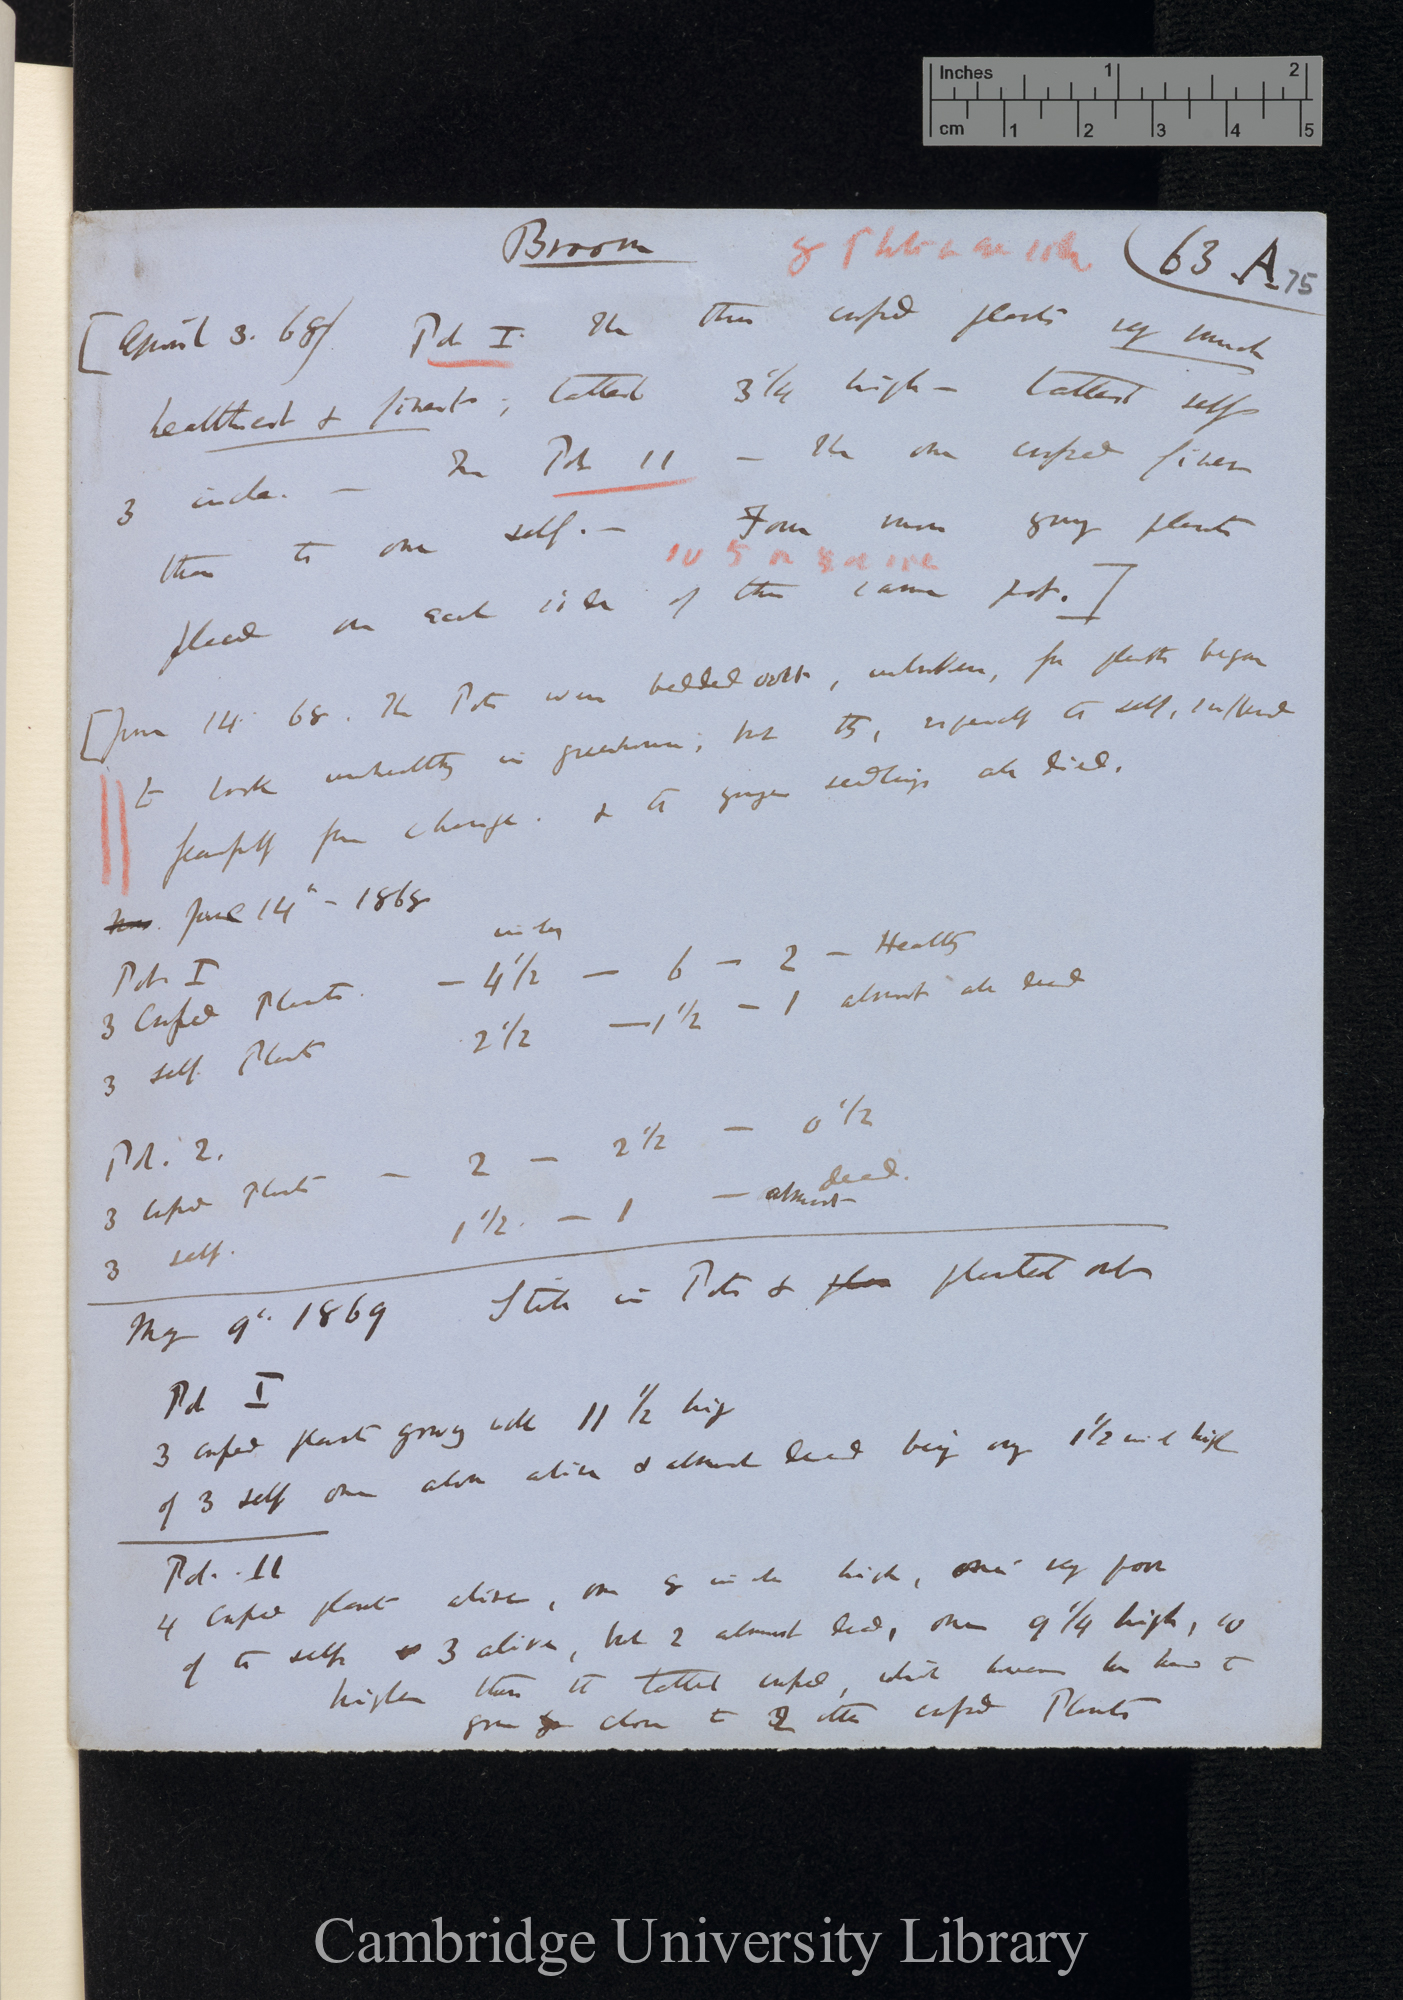 Inches 1 2
cm 1 2 3 4 5
Broom
63 A
75
[April 3. 68/ Pot I. The three crossed plants very much
healthiest & finest; tallest 3 1/4 high — tallest self
3 inches. — In Pot II — The one crossed finer
than the one self. — Four more young plants
10 5 on side
placed on each side of the same pot.]
[June 14. 68. The Pots were bedded out, unbroken, for plants began
to look unhealthy in greenhouse; but they, especially the self, suffered
fearfully from change. & the younger seedlings all died.
June 14th — 1868
inches
Pot I
3 Crossed Plants. — 4 1/2 — 6 — 2 — Healthy
3 self Plants 2 1/2 — 1 1/2 — 1 almost all dead
Pot. 2.
3 crossed Plants — 2 — 2 1/2 — 0 1/2
3 self. 1 1/2. — 1 — almost dead.
May 9th. 1869 Still in Pots & planted out
Pot I
3 crossed plants growing well 11 1/2 high
of 3 self one alone alive & almost dead being only 1 1/2 inch high
Pot. II
4 crossed plants alive, one 8 inches high, very poor
of the selfs 3 alive, but 2 almost dead, one 9 1/4 high, so
higher than the tallest crossed, which however has had to
grow close to 2 other crossed Plants
Cambridge University Library